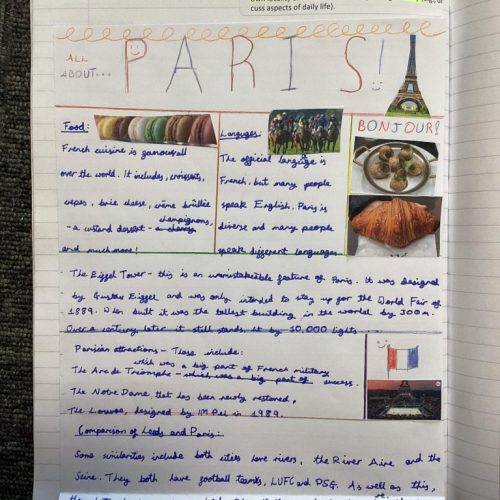 cuss aspects of daily life).
ALL
ABOUT...
PARIS!
BONJOUR!
Food:
French cuisine is famous all
over the world. It includes, croissants,
crepes, brie cheese, crème brûlée
champignons,
- a custard dessert -
and much more!
Languges:
The official languge is
French, but many people
speak English. Paris is
diverse and many people
speak different languages.
The Eiffel Tower - this is an unmistakeable feature of Paris. It was designed
by Gustav Eiffel and was only intended to stay up for the World Fair of
1889. When built it was the tallest building in the world by 300m.
Over a century later it still stands, lit by 10,000 lights
Parisian attractions - These include:
which was a big part of French military
The Arc de Triomphe - which was a big part of success.
The Notre Dame, that has been newly restored,
The Louvre, designed by IM Pei in 1989.
Comparison of Leeds and Paris:
Some similarities include both cities have rivers, the River Aire and the
Seine. They both have football teams, LUFC and PSG. As well as this,